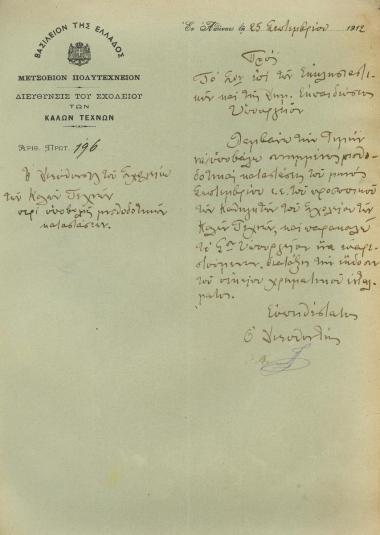 ΒΑΣΙΛΕΙΟΝ ΤΗΣ ΕΛΛΑΔΟΣ
ΜΕΤΣΟΒΙΟΝ ΠΟΛΥΤΕΧΝΕΙΟΝ
ΔΙΕΥΘΥΝΣΙΣ ΤΟΥ ΣΧΟΛΕΙΟΥ
ΤΩΝ
ΚΑΛΩΝ ΤΕΧΝΩΝ
ΑΡΙΘ. ΠΡΩΤ. 196
Ἡ Διεύθυνσις τοῦ Σχολείου
τῶν Καλῶν Τεχνῶν
περὶ ὑποβολῆς μισθοδοτικῆς
καταστάσεως.
Ἐν Ἀθήναις τῇ 25 Σεπτεμβρίου 1912
Πρὸς
Τὸ ἐπὶ τῶν Ἐκκλησιαστι-
κῶν καὶ τῆς Δημ. Ἐκπαιδεύσεως
Ὑπουργεῖον
Λαμβάνω τὴν τιμὴν
νὰ ὑποβάλω συνημμένως μισθο-
δοτικὰς καταστάσεις τοῦ μηνὸς
Σεπτεμβρίου τοῦ προσωπικοῦ
τῶν Καθηγητῶν τοῦ Σχολείου τῶν
Καλῶν Τεχνῶν, καὶ παρακαλῶ
τὸ Σ. Ὑπουργεῖον ἵνα εὐαρε-
στούμενον, διατάξῃ τὴν ἔκδοσιν
τοῦ οἰκείου χρηματικοῦ ἐντάλ-
ματος.
Εὐπειθέστατος
Ὁ Διευθυντής